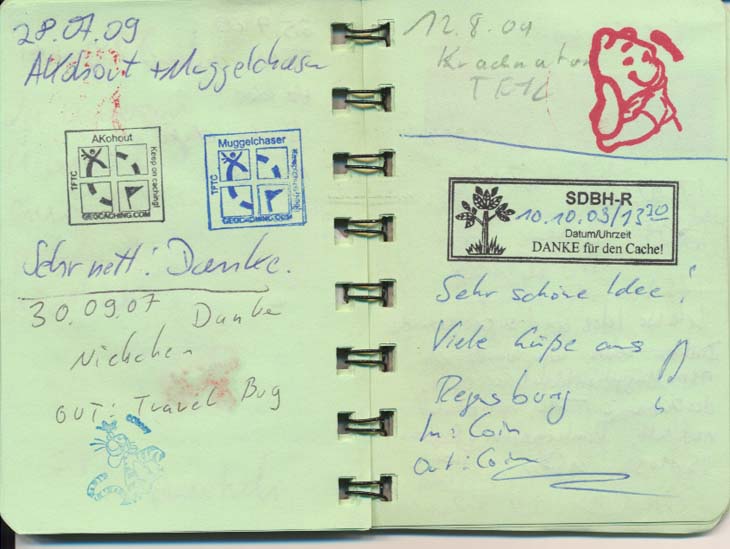 28.07.09
AKohout + Muggelchaser
AKohout
TFTC
Keep on caching!
GEOCACHING.COM
Muggelchaser
TFTC
Keep on caching!
GEOCACHING.COM
Sehr nett! Danke.
30.09.07 Danke
OUT: Travel Bug
12.8.09
TFTC
SDBH-R
10.10.09/13 30
Datum/Uhrzeit
DANKE für den Cache!
Sehr schöne Idee!
Viele Grüße aus
Regensburg
In: Coin
Out: Coin